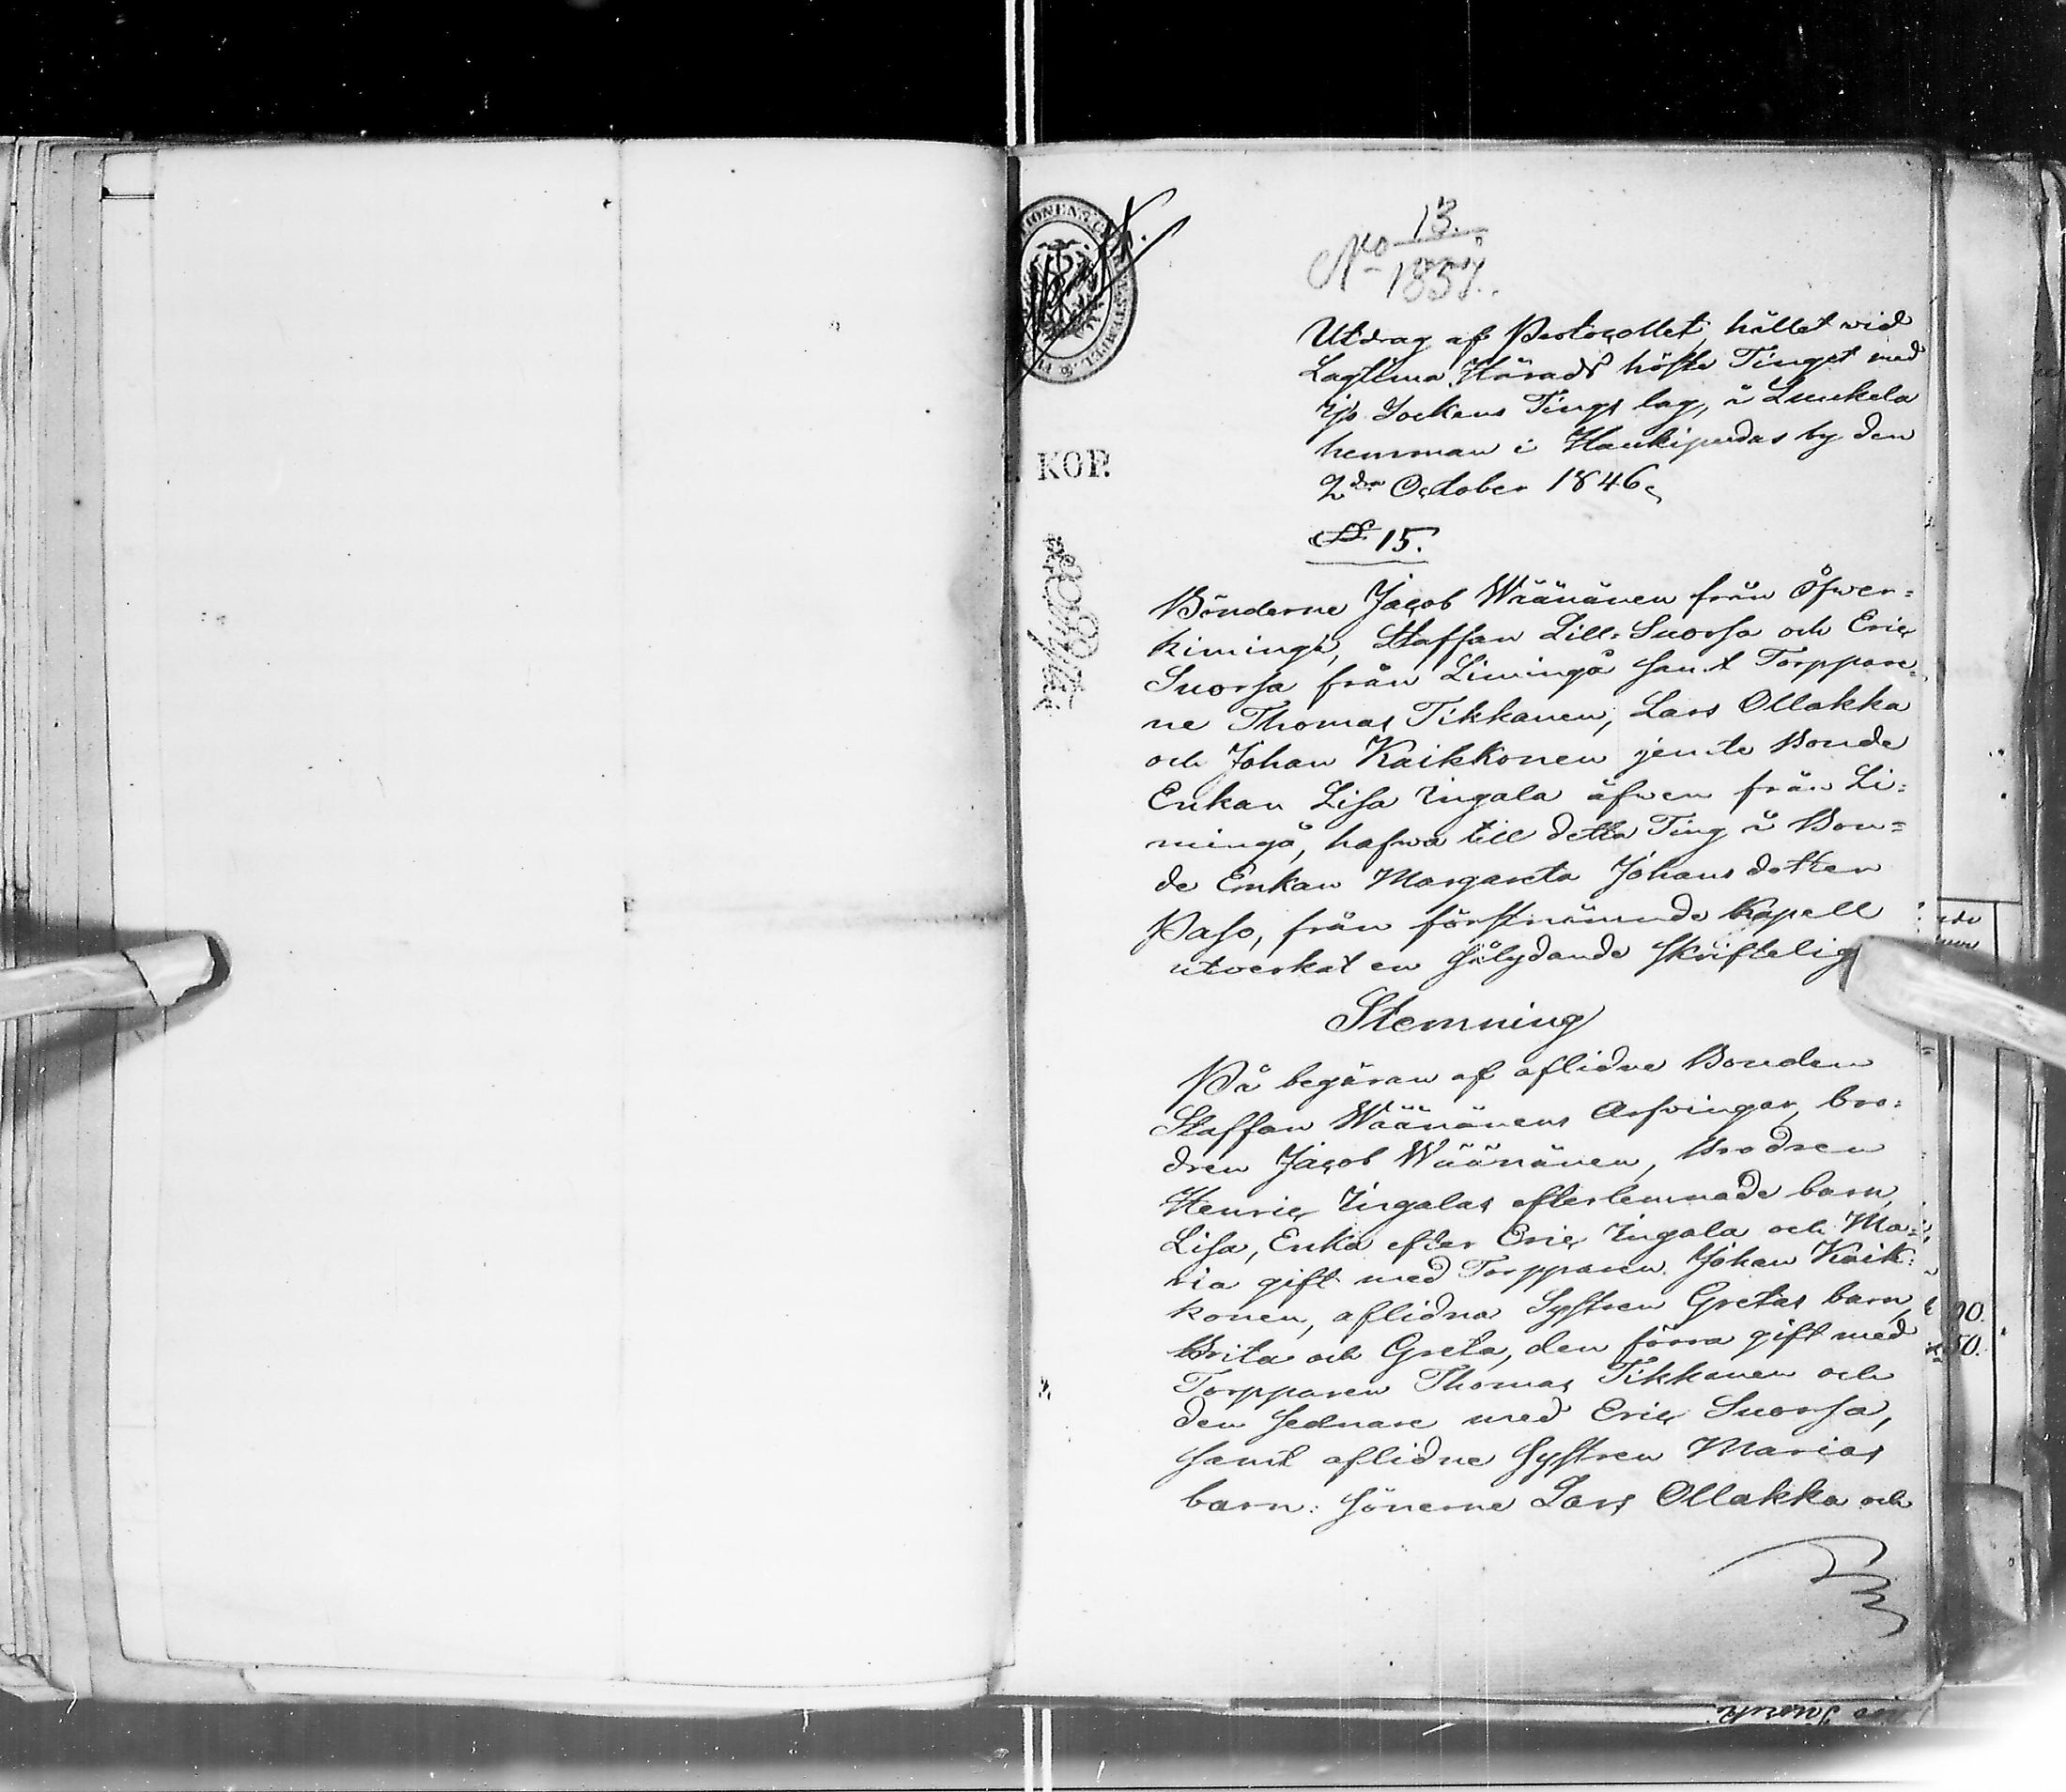 No 13.
1857.
Utdrag af Protocollet, hållet vid
Lagtima Härads höste Tinget med
Ijo Sockens Tings lag, å Luukela
hemman i Haukipudas by den
2den October 1846.
KOP.
§ 15.
Bönderne Jacob Wäänänen från Öfver=
kimingi, Staffan Lill-Suorsa och Eric
Suorsa från Limingå samt Torppare=
ne Thomas Tikkanen, Lars Ollakka
och Johan Kaikkonen jemte Bonde
Enkan Lisa Ingala äfven från Li=
mingå, hafva till detta Ting å Bon=
de Enkan Margareta Johans dotter
Paso, från förstnämnde Kapell
utverkat en sålydande skriftelig
Stemning
På begäran af aflidne Bonden
Staffan Wäänänens Arfvingar, bro=
dren Jacob Wäänänen, Brodren
Henric Ingalas efterlemnade barn,
Lisa, Enka efter Eric Ingala och Ma=
ria gift med Torpparen Johan Kaik=
konen, aflidna Systren Gretas barn,
Brita och Greta, den förra gift med
Torpparen Thomas Tikkanen och
den sednare med Eric Suorsa,
samt aflidne Systren Marias
barn: sönerne Lars Ollakka och
00.
50.